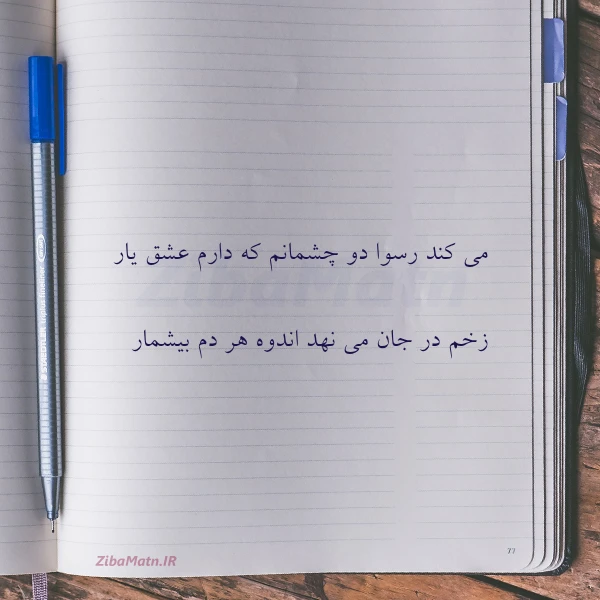 می کند رسوا دو چشمانم که دارم عشق یار
زخم در جان می نهد اندوه هر دم بیشمار
ZibaMatn.IR